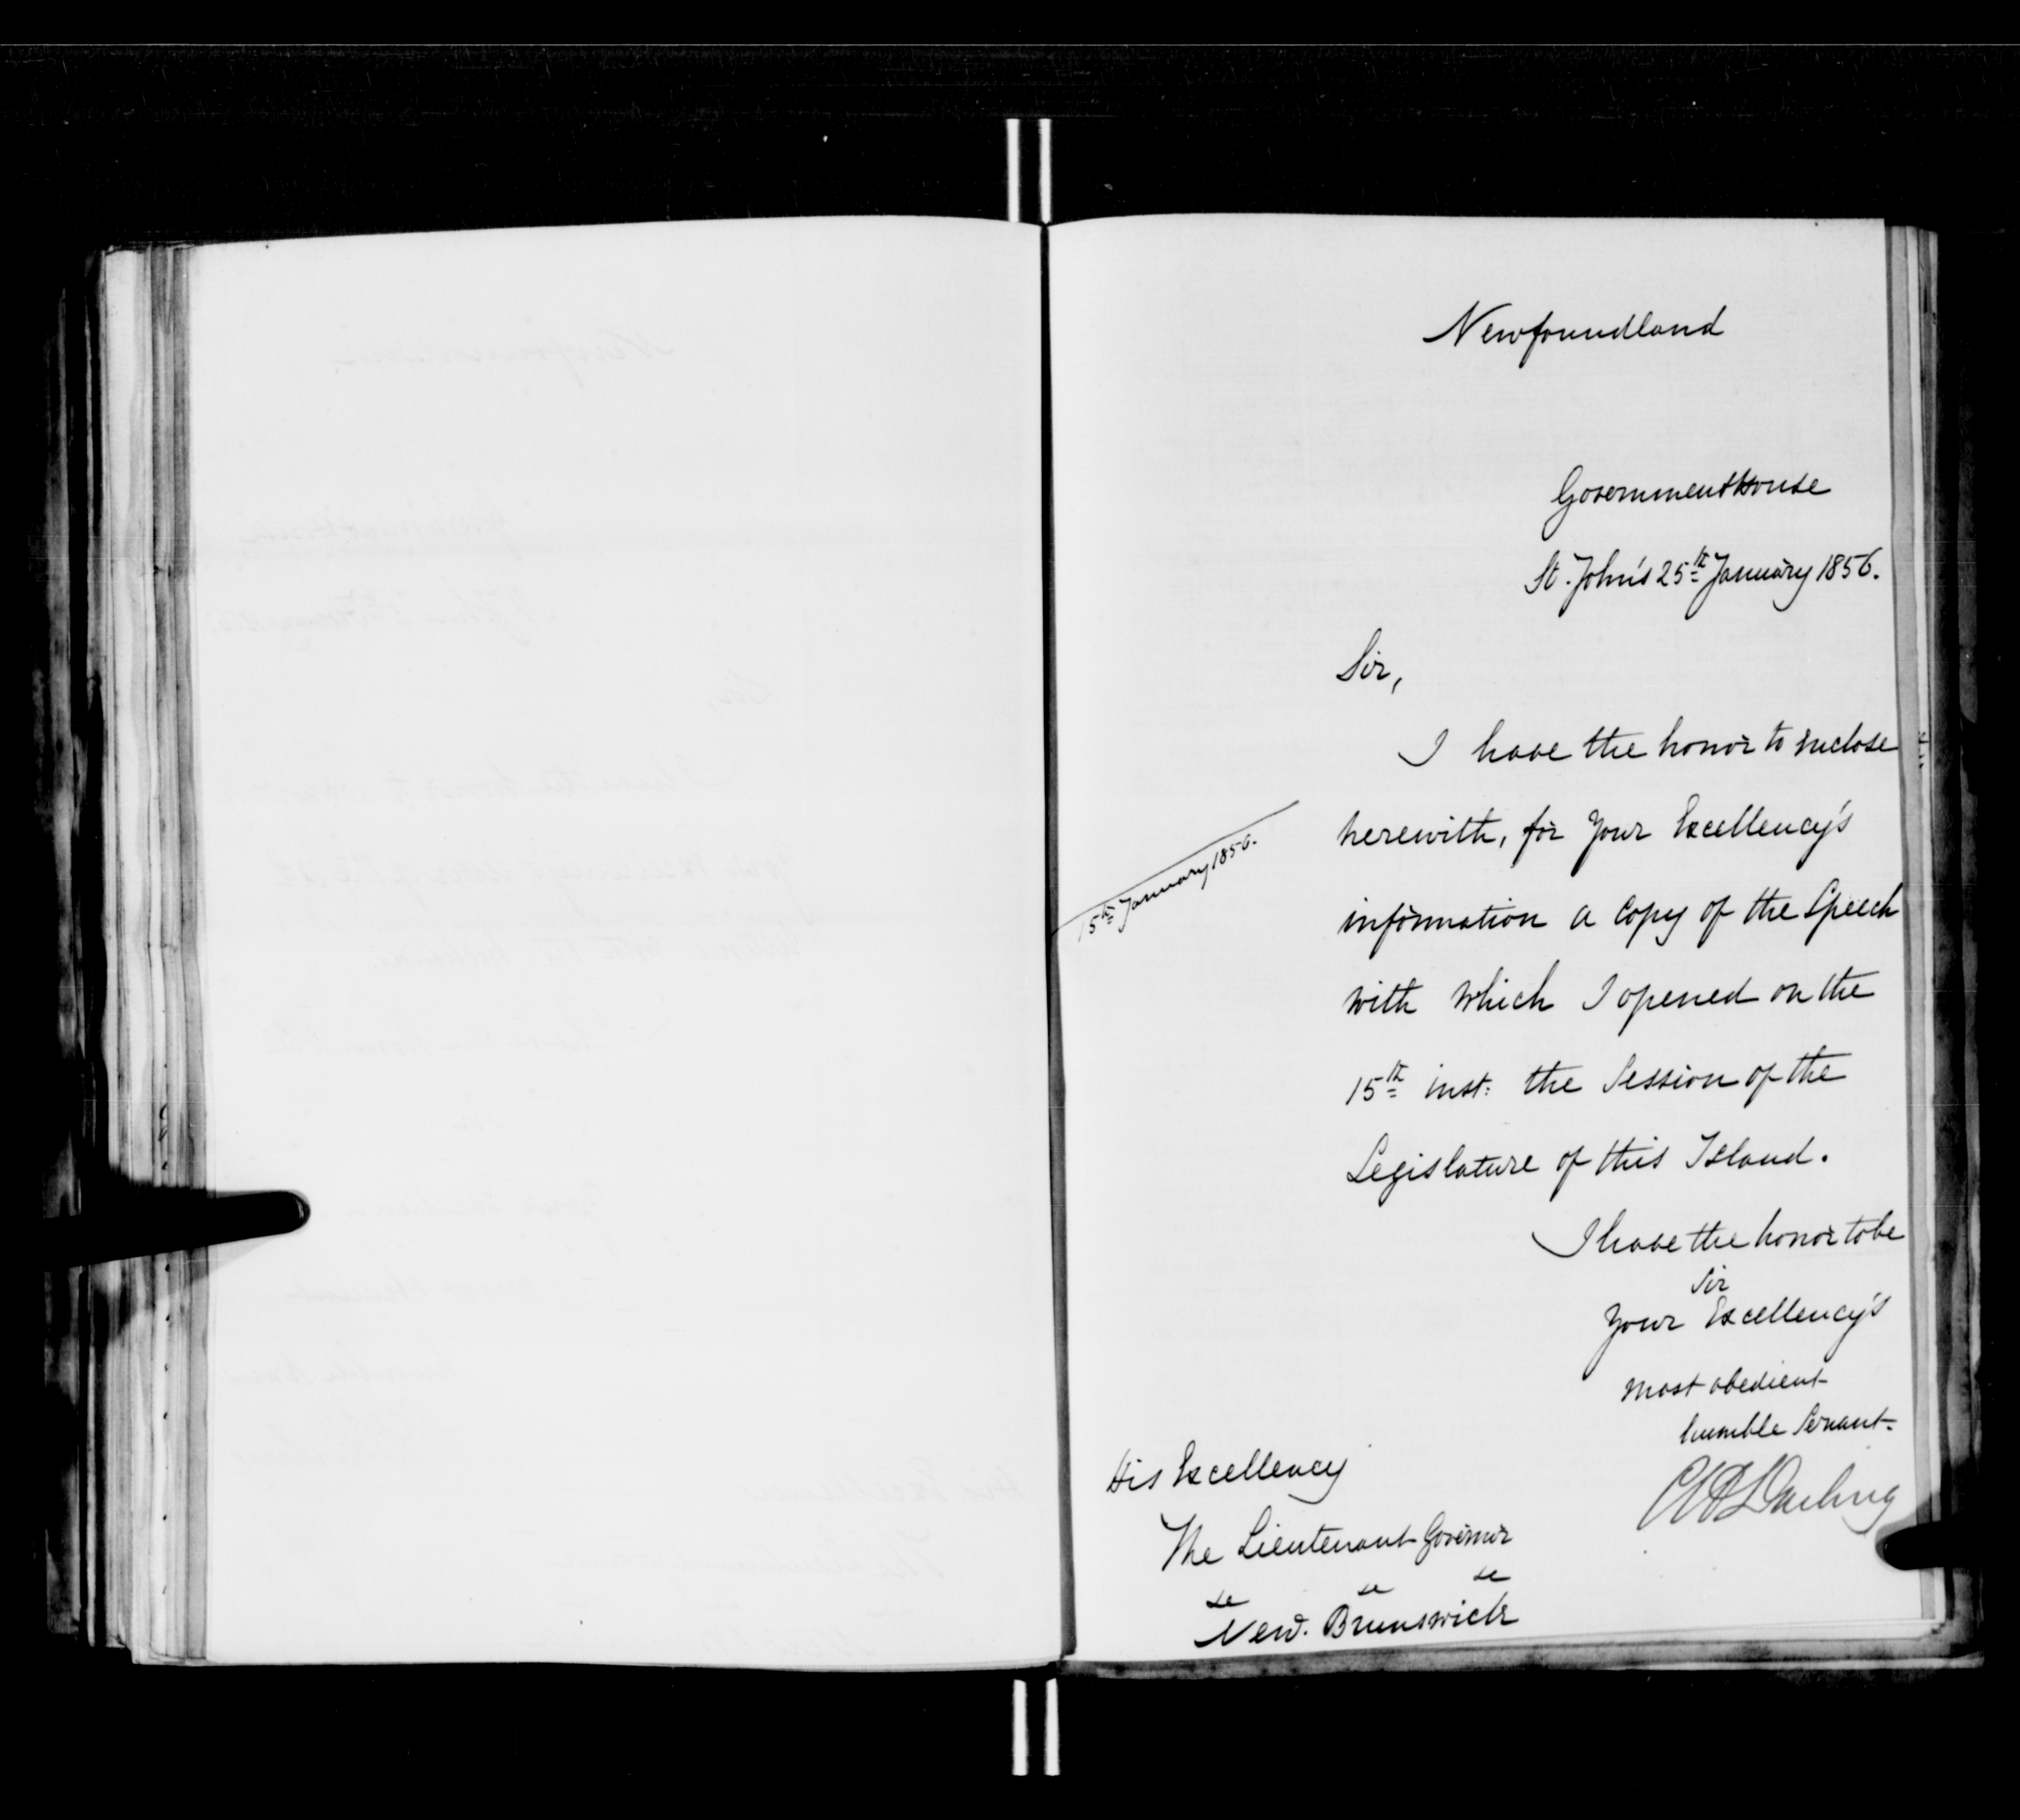 Newfoundland
Government House
St. John's 25th January 1856.
Sir,
I have the honor to enclose
herewith, for Your Excellency's
15th January 1856.
information a Copy of the Speech
with which I opened on the
15th inst: the Session of the
Legislature of this Island.
I have the honor to be
Sir
Your Excellency's
most obedient
humble Servant
His Excellency
The Lieutenant Governor
&c &c &c
New Brunswick
Darling